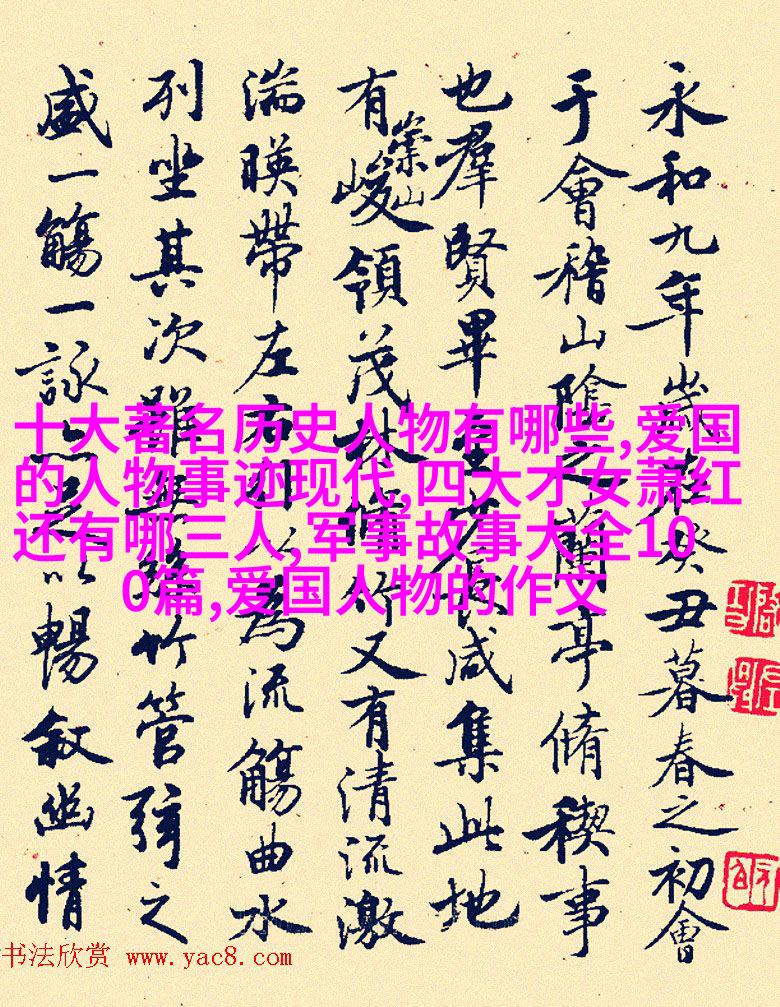 永和九年歲在癸丑暮春之初會
于會稽山陰之蘭亭脩稧事
也羣賢畢至少長咸集此地
有崇山峻領茂林脩竹又有清流激
湍暎帶左右引以為流觴曲水
列坐其次雖無絲竹管弦之
盛一觴一詠亦足以暢敘幽情
十大著名历史人物有哪些,爱国
的人物事迹现代,四大才女萧红
还有哪三人,军事故事大全10
0篇,爱国人物的作文
书法欣赏 www.yac8.com